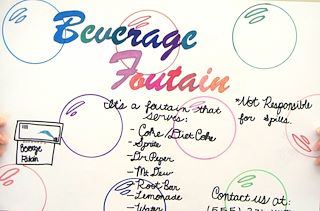 Beverage
Foutain
It's a foutain that
serves:
- Coke/Diet Coke
- Sprite
- Dr Peper
- Mt Dew
- Root Bar
- Lemonade
- Water
*Not Responsible
for spills.
Beverage
Contact us at: